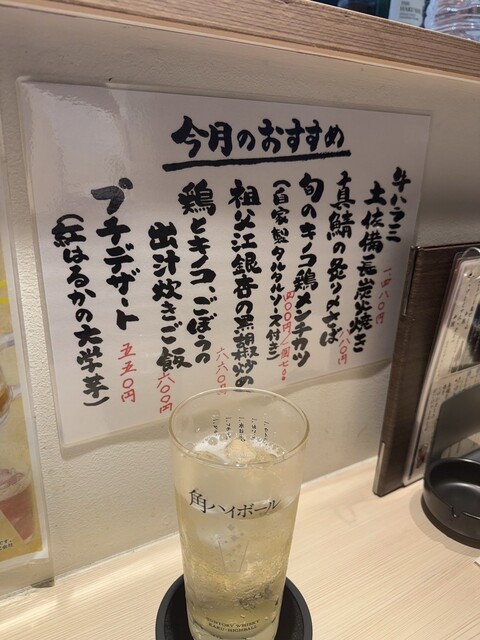 今月のおすすめ
牛ハラミ
土佐備長炭火焼き
一、四八〇円
真鯖の炙り〆さば
八〇円
旬のキノコ鶏メンチカツ
(自家製タルタルソース付き)
四〇〇円/個
祖父江銀杏の黒胡椒炒め
六六〇円
鶏とキノコ、ごぼうの
出汁炊きご飯
六六〇円
プチデザート
(紅はるかの大学芋)
五五〇円
角ハイボール
SUNTORY WHISKY
KAKU-HIGHBALL